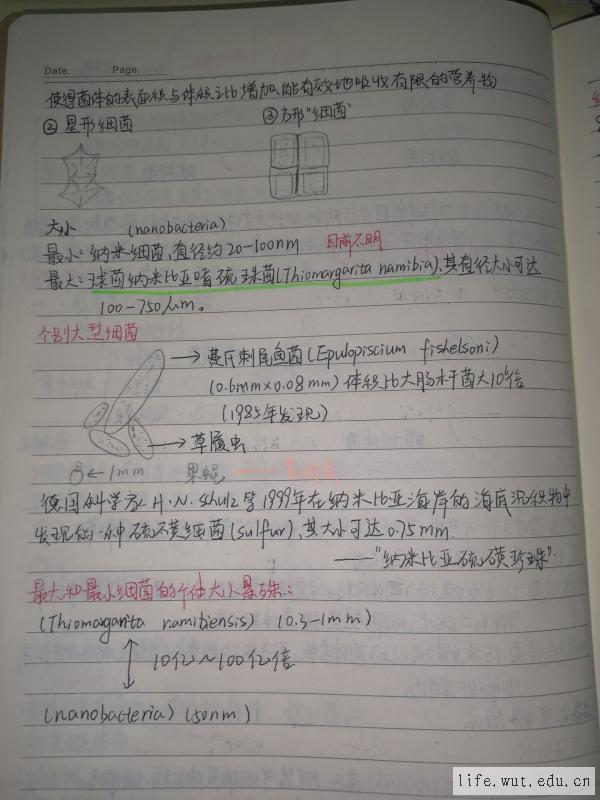 Date. Page.
使得菌体的表面积与体积之比增加,能有效地吸收有限的营养物
② 星形细菌 ③方形"细菌"
大小 (nanobacteria)
最小:纳米细菌,直径约20-100nm 目前不明
最大:球菌纳米比亚嗜硫珠菌(Thiomargarita namibia),其直径大小可达
100-750μm。
个别大型细菌
→费氏刺尾鱼菌(Epulopiscium fishelsoni)
(0.6mm×0.08mm) 体积比大肠杆菌大10⁶倍
(1985年发现)
→草履虫
←1mm 果蝇
德国科学家H·N·Shulz等1999年在纳米比亚海岸的海底沉积物中
发现的一种硫磺细菌(sulfur),其大小可达0.75mm.
——"纳米比亚硫磺珍珠".
最大和最小细菌的个体大小悬殊:
(Thiomargarita namibiensis) (0.3-1mm)
10亿~100亿倍
(nanobacteria) (50nm)
life.wut.edu.cn